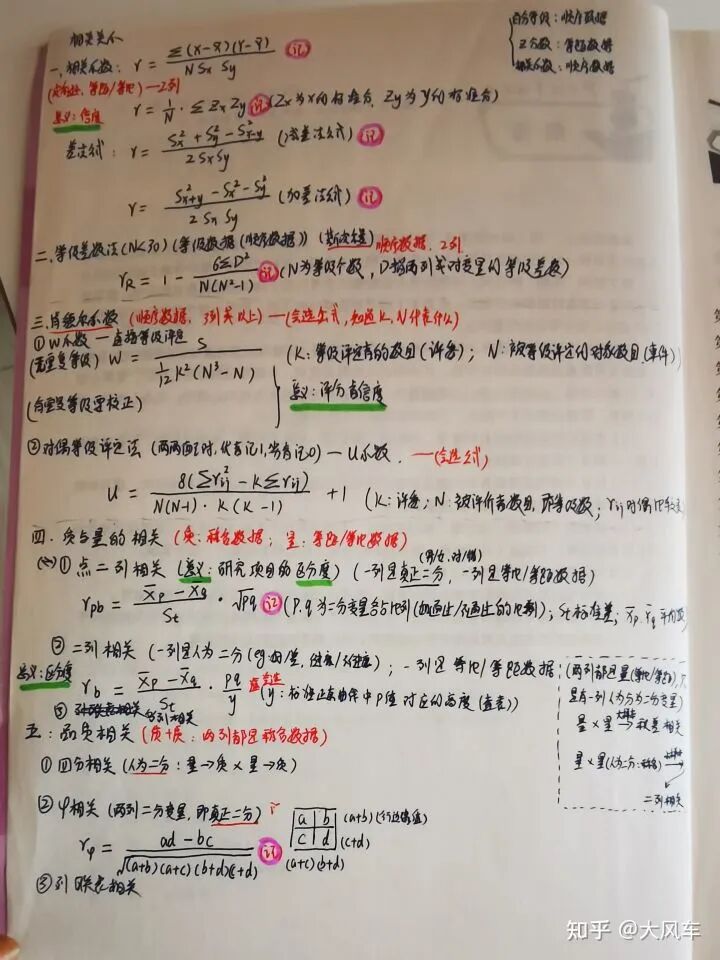 相关系数
百分等级：顺序数据
Z分数：等距数据
相关系数：顺序数据
一、相关系数：r = Σ(X-X̄)(Y-Ȳ) / N Sx Sy 记
等距/等比)—2列
意义：信度
r = 1/N · Σ Zx Zy 记 (Zx为X的标准分，Zy为Y的标准分)
差法公式：r = (Sx² + Sy² - S²x-y) / 2 Sx Sy (减差法公式) 记
r = (S²x+y - Sx² - Sy²) / 2 Sx Sy (加差法公式) 记
二、等级差数法(N<30)(等级数据(顺序数据)) 顺序数据，2列
rR = 1 - 6ΣD² / N(N²-1) 记 (N为等级个数，D指两列成对变量的等级差数)
三、肯德尔系数 (顺序数据，3列及以上)—(会选公式，知道K、N代表什么)
① W系数—直接等级评定
(无重复等级) W = S / 1/12 K²(N³-N) (K：等级评定者的数目(评委)；N：被等级评定的对象数目(事件))
(有重复等级要校正) 意义：评分者信度
② 对偶等级评定法 (两两配对，优者记1，劣者记0)—U系数 —(会选公式)
U = 8(Σrij² - KΣrij) / N(N-1)·K(K-1) + 1 (K：评委；N：被评价者数目，即等级数；rij对偶比较
四、质与量的相关 (质：称名数据；量：等距/等比数据)
(男/女，对/错)
① 点二列相关 (意义：研究项目的区分度) (一列是真正二分，一列是等比/等距数据)
rpb = (X̄p - X̄q) / St · √pq 记 (P、q为二分变量各占比例(如通过/不通过的比例)；St标准差；X̄p、X̄q平均数
② 二列相关 (一列是人为二分 ；一列是等比/等距数据
意义：区分度
rb = (X̄p - X̄q) / St · pq / y (y：标准正态曲线中P值对应的高度(查表))
③ 多列相关
(两列都是量(等比/等距)，
是有一列人为分为二分变量)
量×量→积差相关
量×量(人为二分
二列相关
五：品质相关 (质+质：两列都是称名数据)
① 四分相关 (人为二分：量→质×量→质)
② φ相关 (两列二分变量，即真正二分)
rφ = (ad - bc) / √(a+b)(a+c)(b+d)(c+d) 记
a b (a+b)
c d (c+d)
(a+c)(b+d)
③ 列联表相关
知乎 @大风车